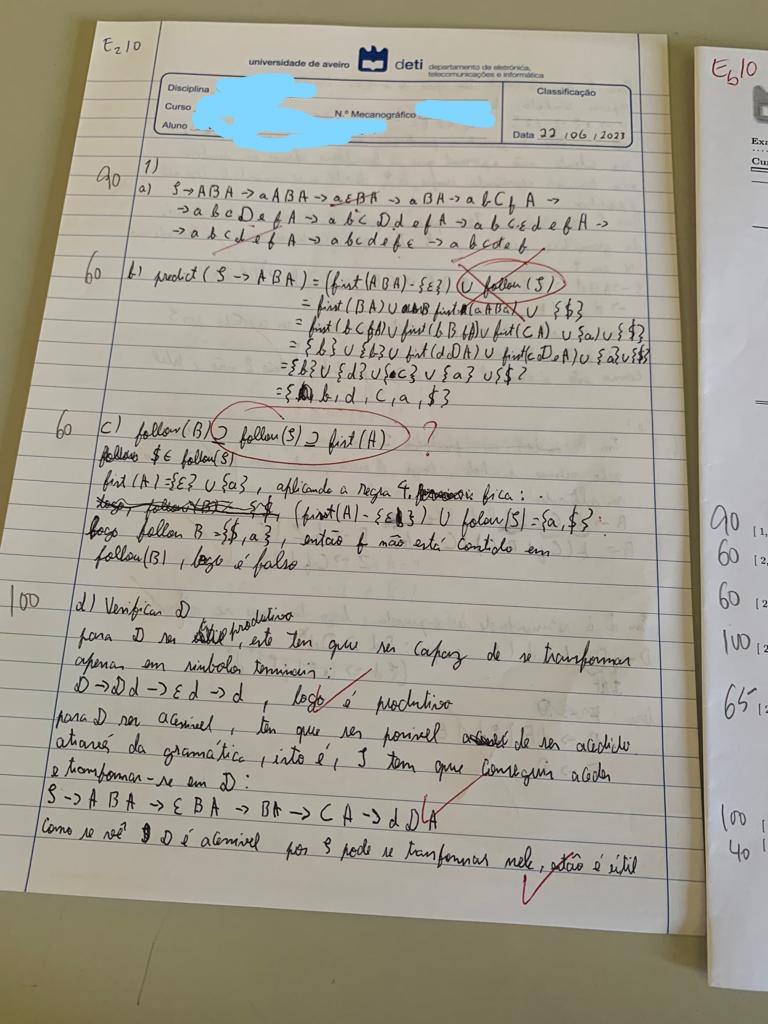 E₂10
universidade de aveiro deti departamento de eletrónica, telecomunicações e informática
Disciplina
Curso
N.º Mecanográfico
Aluno
Classificação
Data 22/06/2023
90
1)
a) S→ABA→aABA→aεBA→aBA→abCfA→
→abcDefA→abcDdefA→abcεdefA→
→abcdefA→abcdefε→abcdef
60
b) predict(S→ABA)=(first(ABA)-{ε}) ∪ follow(S)
= first(BA) ∪ first(aABa) ∪ {$}
= first(bCfA) ∪ first(bBfA) ∪ first(CA) ∪ {a} ∪ {$}
= {b} ∪ {b} ∪ first(dDA) ∪ first(cDeA) ∪ {a} ∪ {$}
= {b} ∪ {d} ∪ {c} ∪ {a} ∪ {$}
= {b, d, c, a, $}
60
c) follow(B) ⊇ follow(S) ⊇ first(A) ?
$ ∈ follow(S)
first(A)={ε} ∪ {a}, aplicando a regra 4, fica:
(first(A)-{ε}) ∪ folow(S)={a,$}
logo follow B={$,a}, então f não está contido em
follow(B), logo é falso
100
d) Verificar D
para D ser produtivo, este tem que ser capaz de se transformar
apenas em simbolos terminais:
D→Dd→εd→d, logo é produtivo
para D ser acessivel, tem que ser possivel de ser acedido
através da gramática, isto é, S tem que conseguir aceder
e transformar-se em D:
S→ABA→εBA→BA→CA→dDA
Como se vê D é acessivel pos S pode se tranformar nele, então é útil
E_b10
Exa
Cu
90 [1,
60 [2,
60 [2
100 [2
65 [2
100 [
40 [